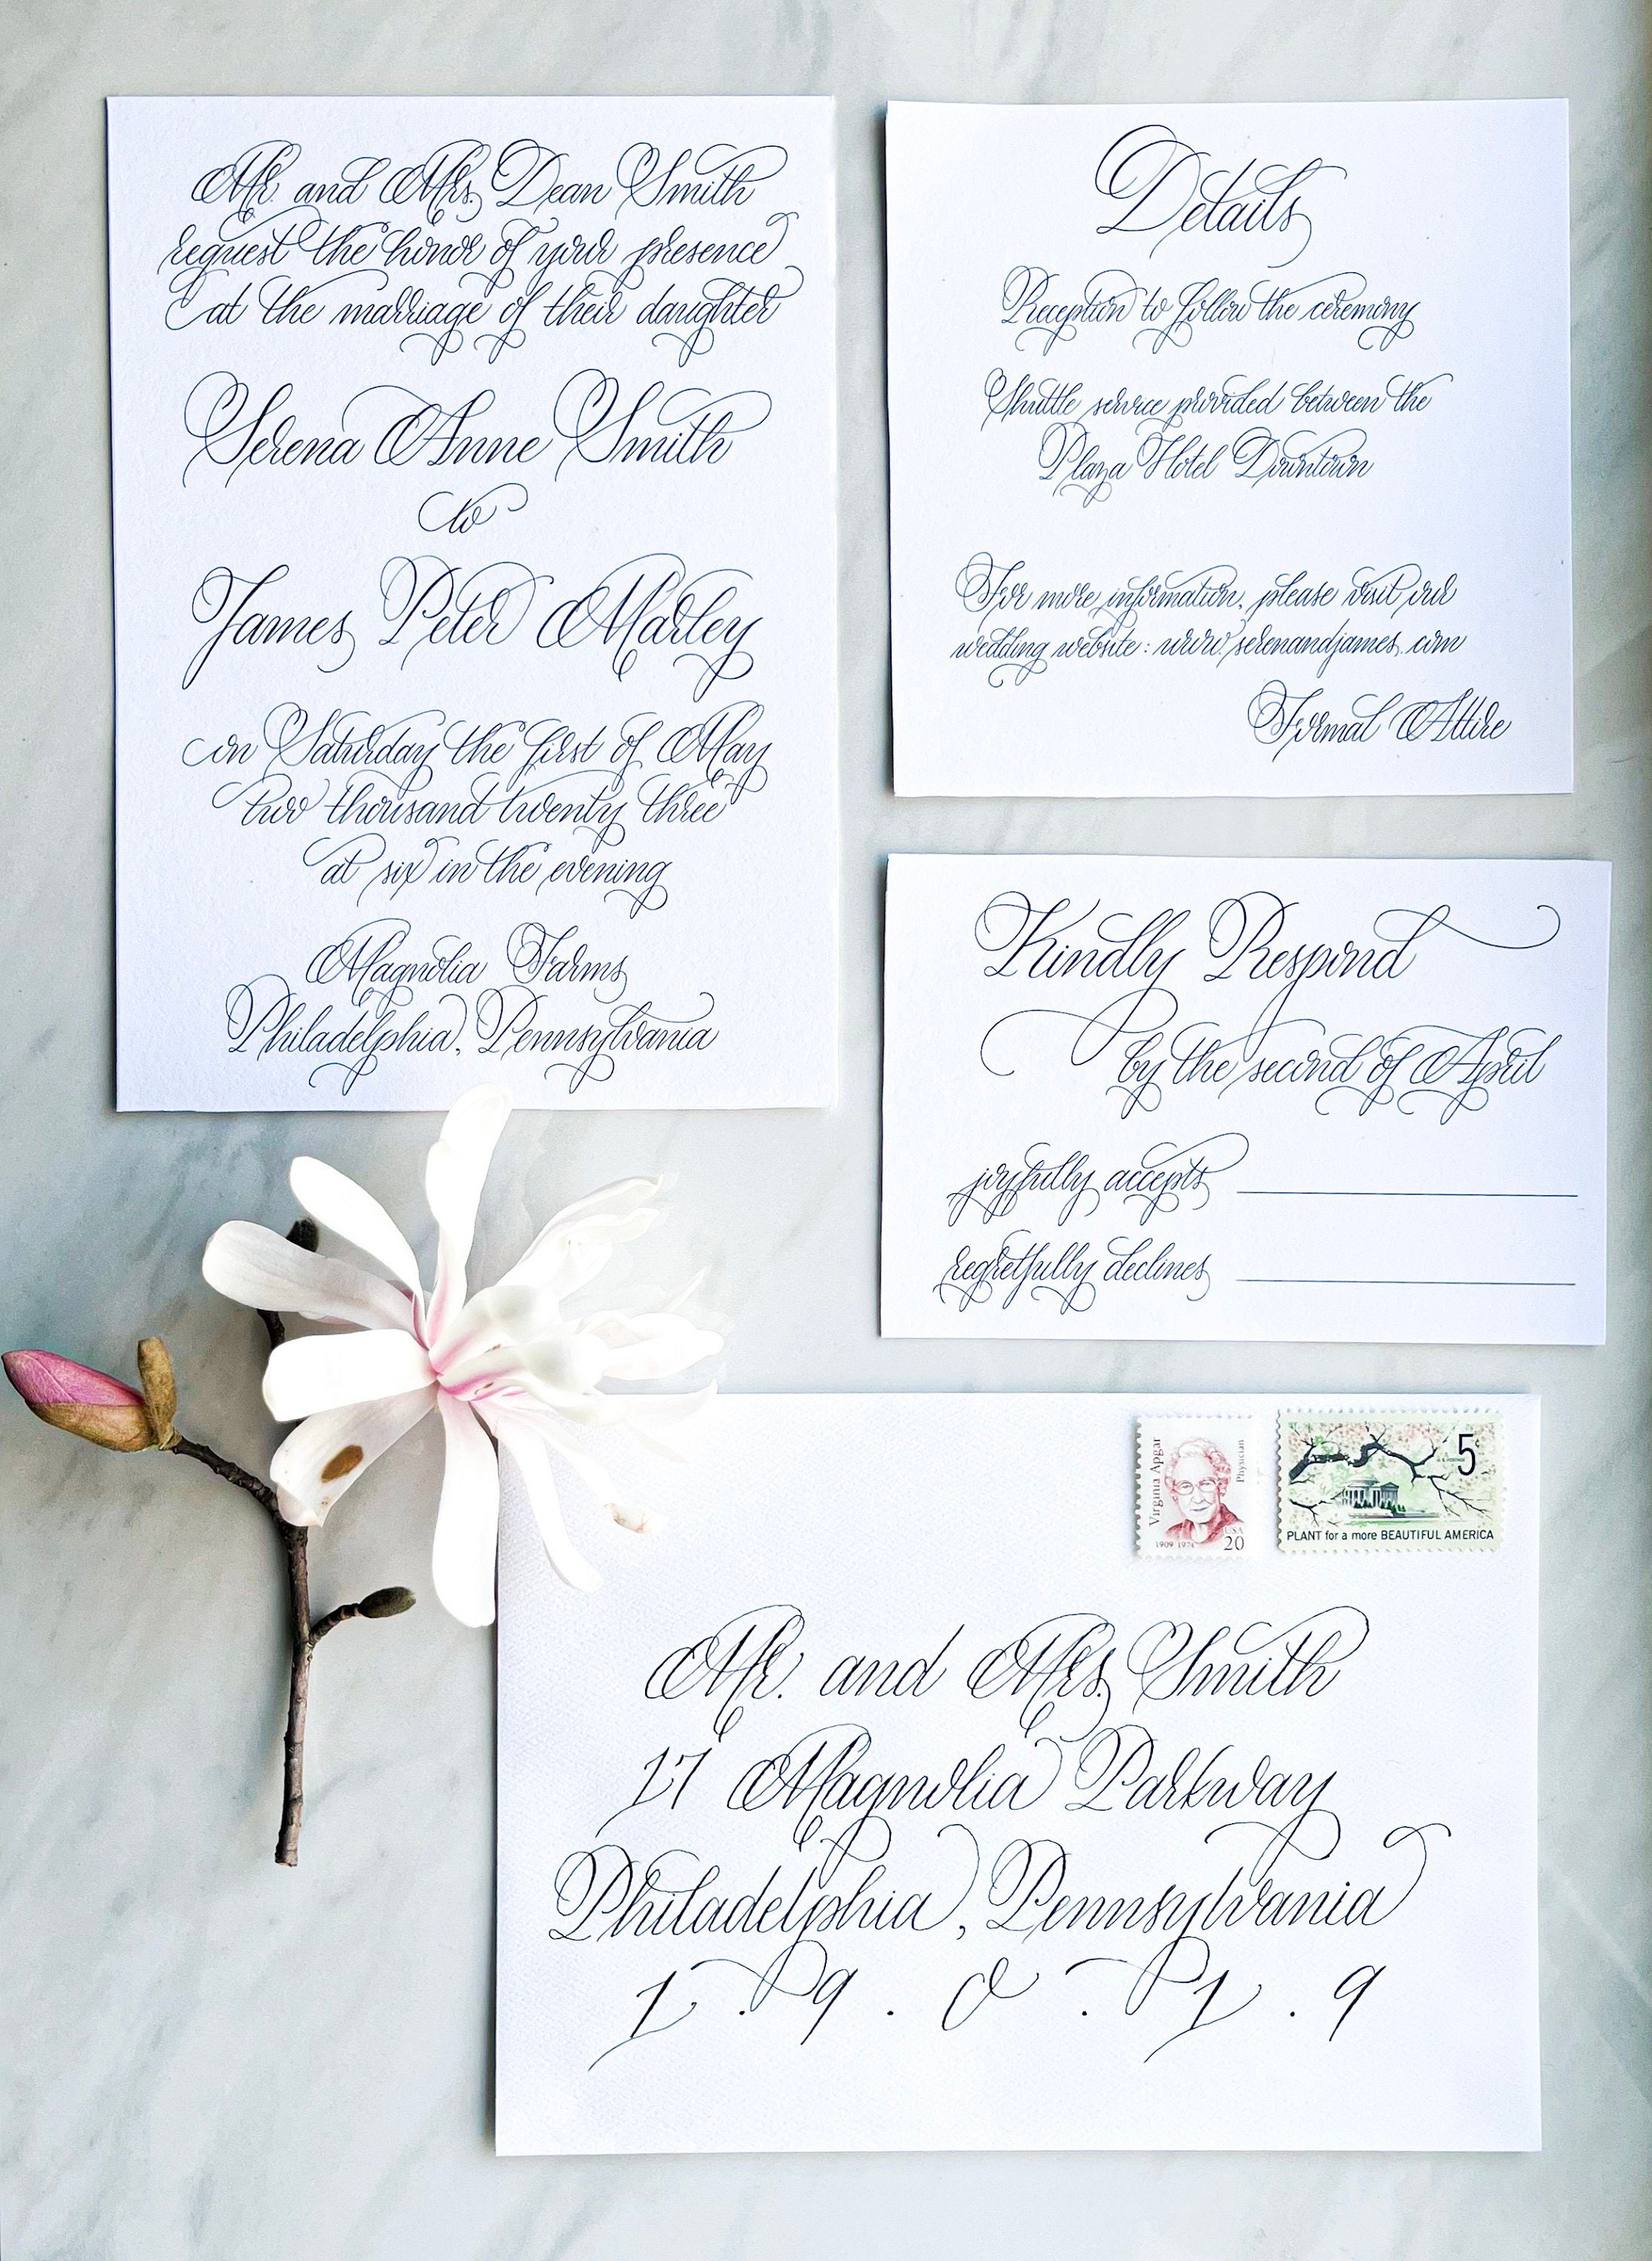 Mr. and Mrs. Dean Smith
request the honor of your presence
at the marriage of their daughter
Serena Anne Smith
to
James Peter Marley
on Saturday the first of May
two thousand twenty three
at six in the evening
Magnolia Farms
Philadelphia, Pennsylvania
Details
Reception to follow the ceremony
Shuttle service provided between the
Plaza Hotel Downtown
For more information, please visit our
wedding website: www.serenandjames.com
Formal Attire
Kindly Respond
by the second of April
joyfully accepts
regretfully declines
Virginia Apgar
Physician
1909 1974
USA
20
5c
PLANT for a more BEAUTIFUL AMERICA
Mr. and Mrs. Smith
17 Magnolia Parkway
Philadelphia, Pennsylvania
1 . 9 . 0 . 1 . 9